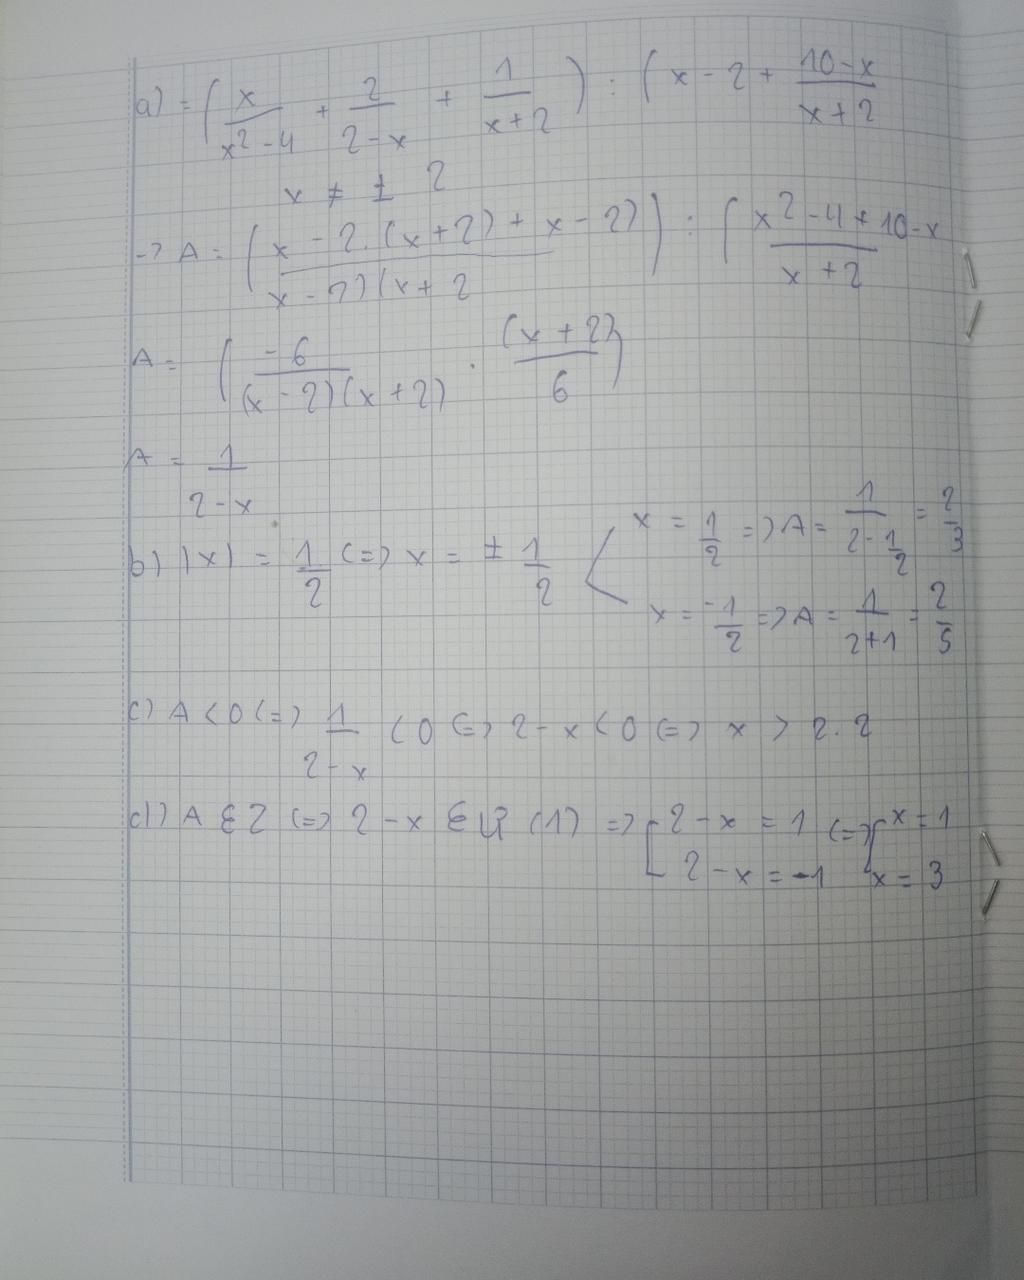 a) = ( x/(x² - 4) + 2/(2 - x) + 1/(x + 2) ) : ( x - 2 + (10 - x)/(x + 2)
x ≠ ± 2
-> A = ( (x - 2.(x + 2) + x - 2))/(x - 2)(x + 2 ) : ( (x² - 4 + 10 - x)/(x + 2)
A = ( -6/((x - 2)(x + 2)) . (x + 2)/6 )
A = 1/(2 - x)
b) |x| = 1/2 (=) x = ± 1/2 < x = 1/2 => A = 1/(2 - 1/2) = 2/3
x = -1/2 => A = 1/(2 + 1) = 2/5
c) A < 0 (=) 1/(2 - x) < 0 (=) 2 - x < 0 (=) x > 2. 2
d) A ∈ Z (=) 2 - x ∈ Ư (1) => [ 2 - x = 1 (=) [ x = 1
2 - x = -1 x = 3